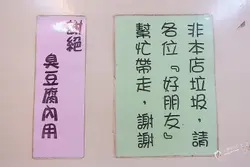 謝絕
臭豆腐內用
非本店垃圾，請
各位『好朋友』
幫忙帶走，謝謝